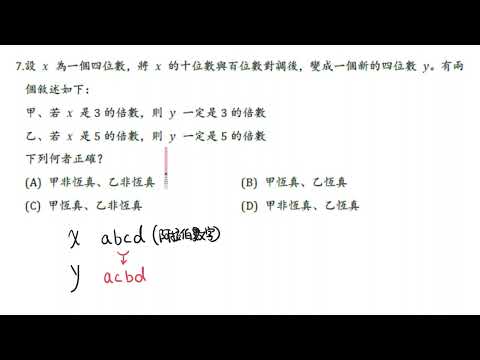 7.設 x 為一個四位數，將 x 的十位數與百位數對調後，變成一個新的四位數 y。有兩
個敘述如下：
甲、若 x 是 3 的倍數，則 y 一定是 3 的倍數
乙、若 x 是 5 的倍數，則 y 一定是 5 的倍數
下列何者正確？
(A) 甲非恆真、乙非恆真 (B) 甲恆真、乙恆真
(C) 甲恆真、乙非恆真 (D) 甲非恆真、乙恆真
x abcd (阿拉伯數字)
y acbd